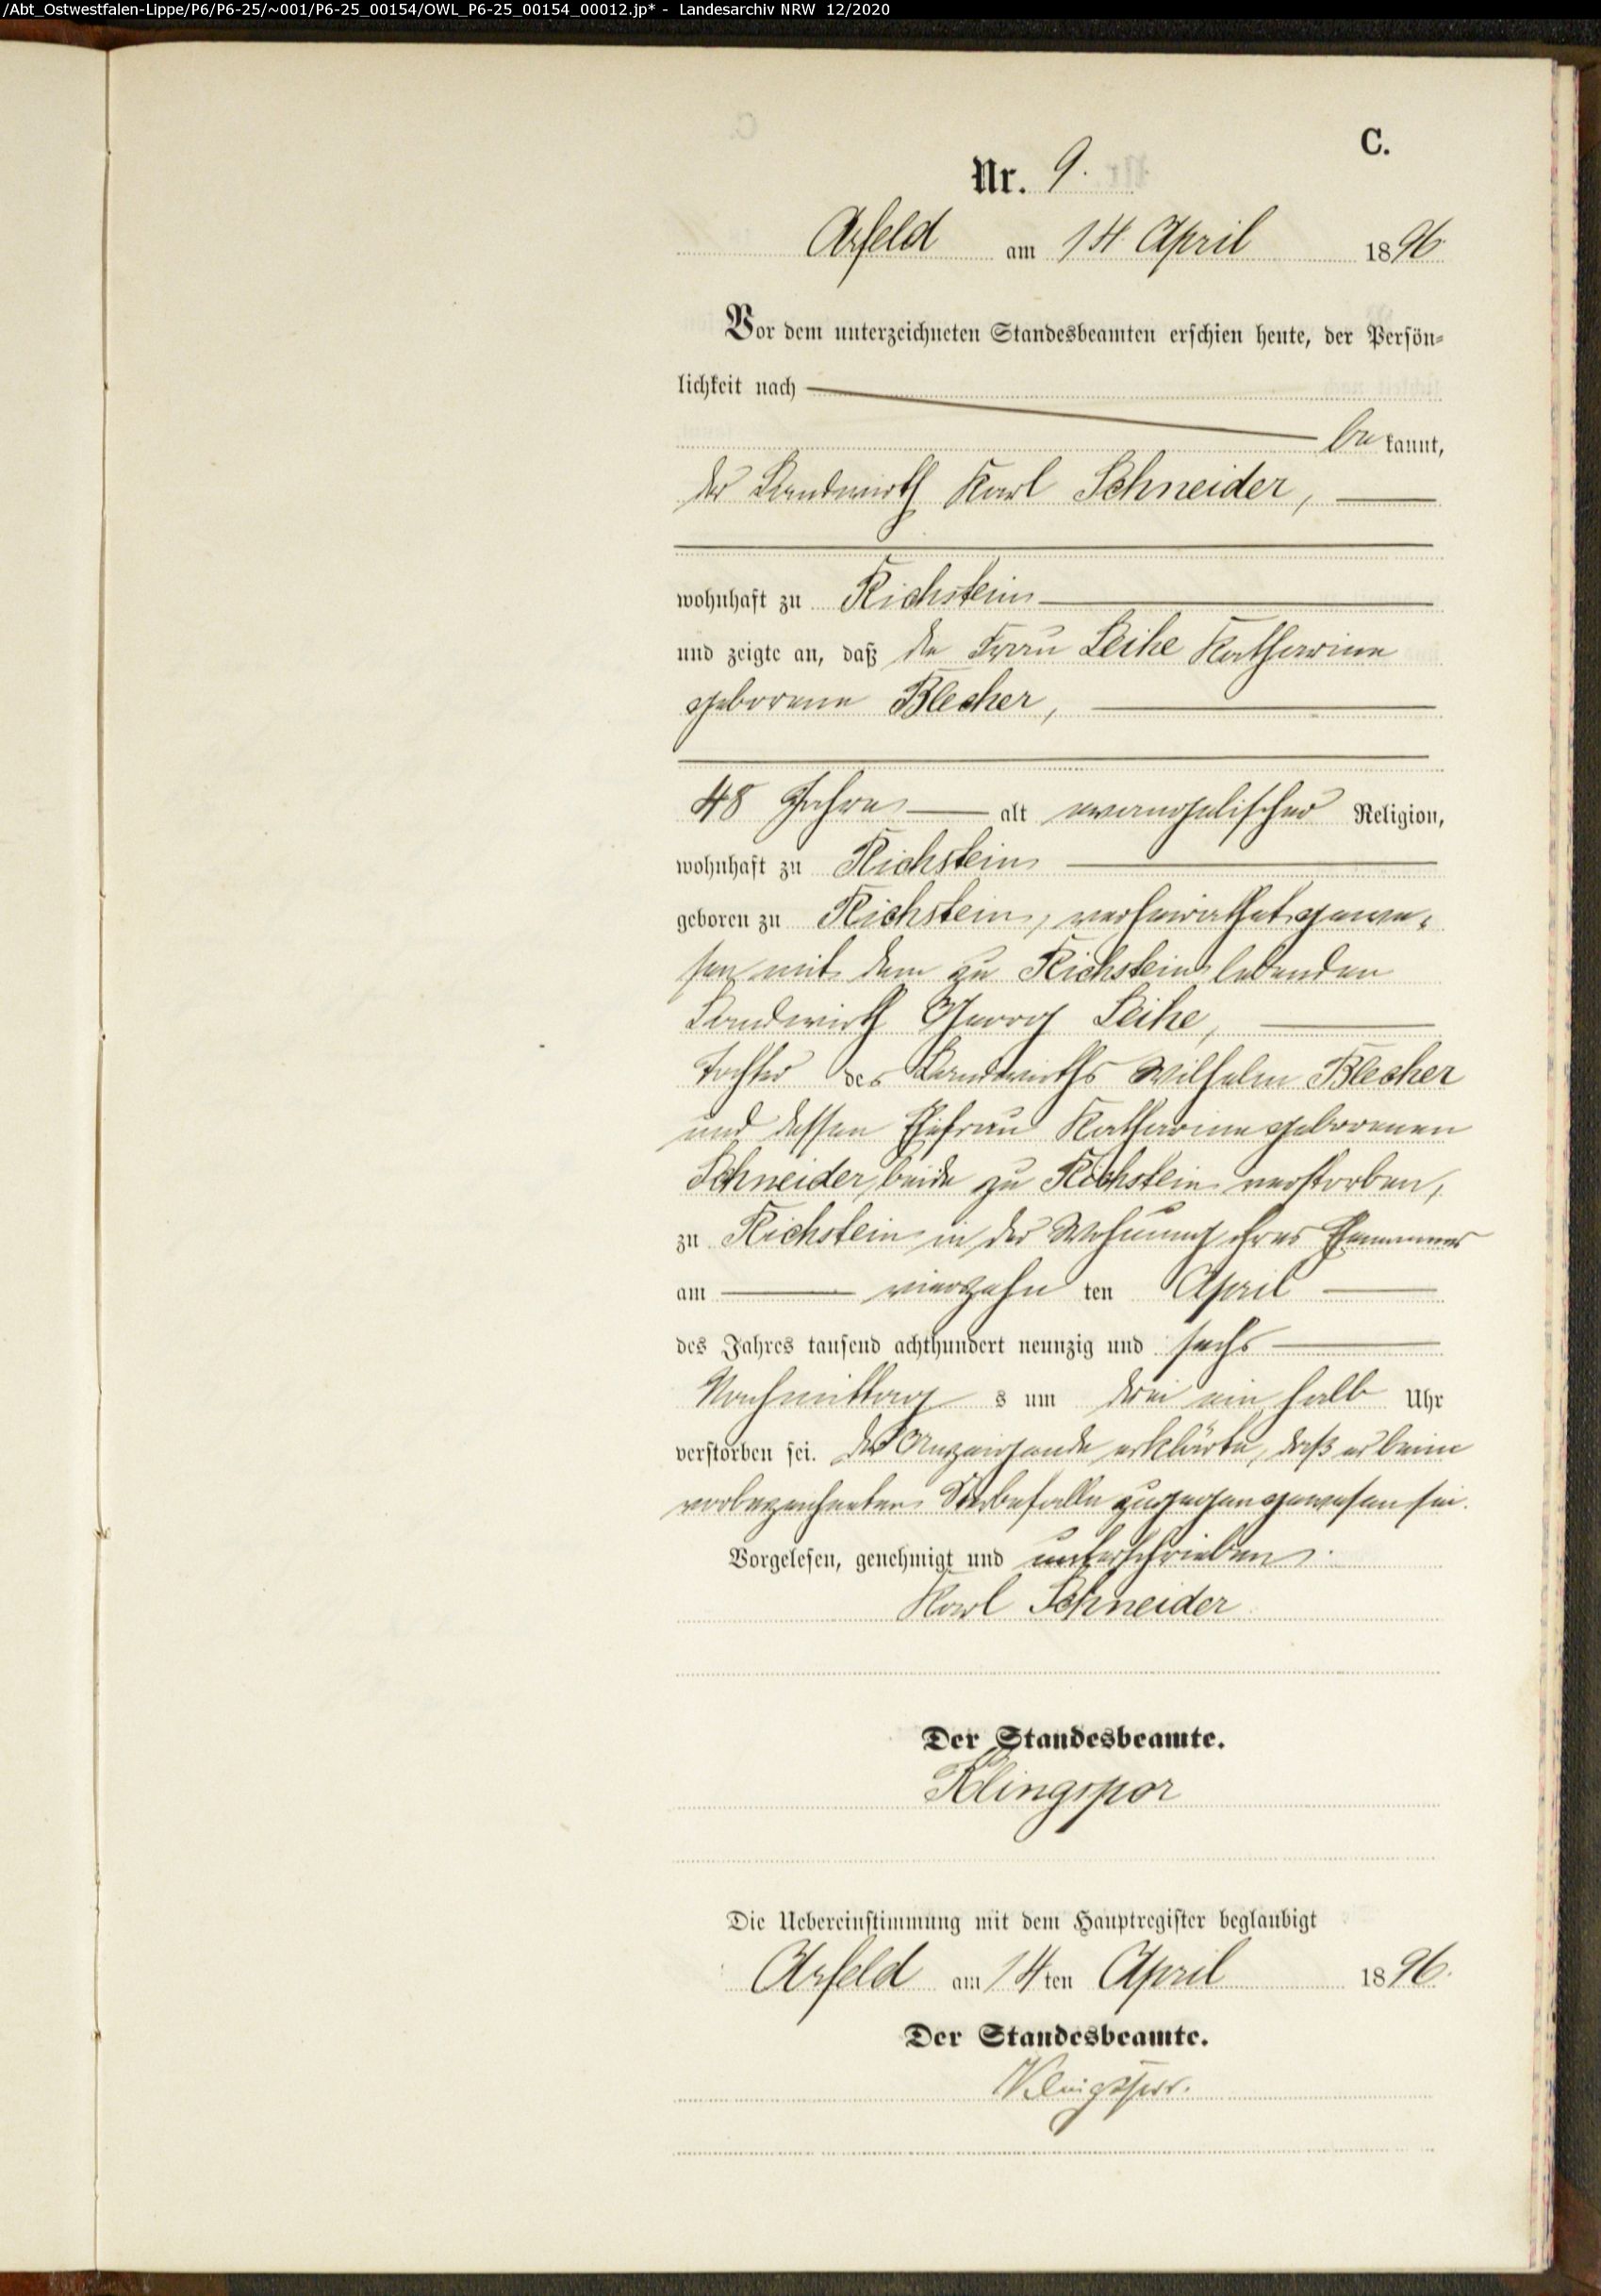 /Abt_Ostwestfalen-Lippe/P6/P6-25/~001/P6-25_00154/OWL_P6-25_00154_00012.jp* - Landesarchiv NRW 12/2020
C.
Nr. 9.
Arfeld am 14. April 1896
Vor dem unterzeichneten Standesbeamten erschien heute, der Persön-
lichkeit nach
be kannt,
der Landwirth Karl Schneider,
wohnhaft zu Richstein
und zeigte an, daß die Frau Leihe Katharine
geborene Blecher,
48 Jahre alt evangelischer Religion,
wohnhaft zu Richstein
geboren zu Richstein, verheirathet gewe-
sen mit dem zu Richstein lebenden
Landwirth Georg Leihe,
Tochter des Landwirths Wilhelm Blecher
und dessen Ehefrau Katharine geborenen
Schneider, beide zu Richstein verstorben,
zu Richstein in der Wohnung ihres Ehemannes
am vierzehn ten April
des Jahres tausend achthundert neunzig und sechs
Nachmittag s um drei ein halb Uhr
verstorben sei. Der Anzeigende erklärte, daß er beim
vorbezeichneten Sterbefalle zugegen gewesen sei.
Vorgelesen, genehmigt und unterschrieben.
Karl Schneider
Der Standesbeamte.
Klingspor
Die Uebereinstimmung mit dem Hauptregister beglaubigt
Arfeld am 14ten April 1896.
Der Standesbeamte.
Klingspor.